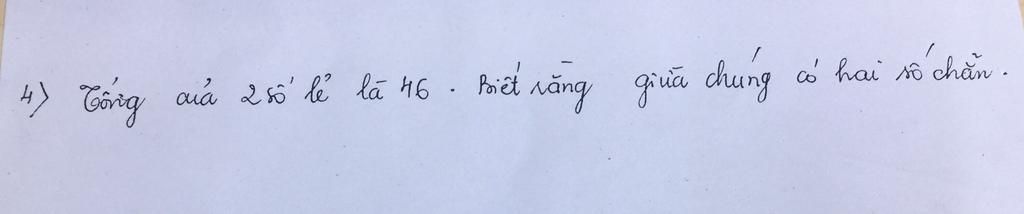 4) Tổng của 2 số lẻ là 46. Biết rằng giữa chúng có hai số chẵn.